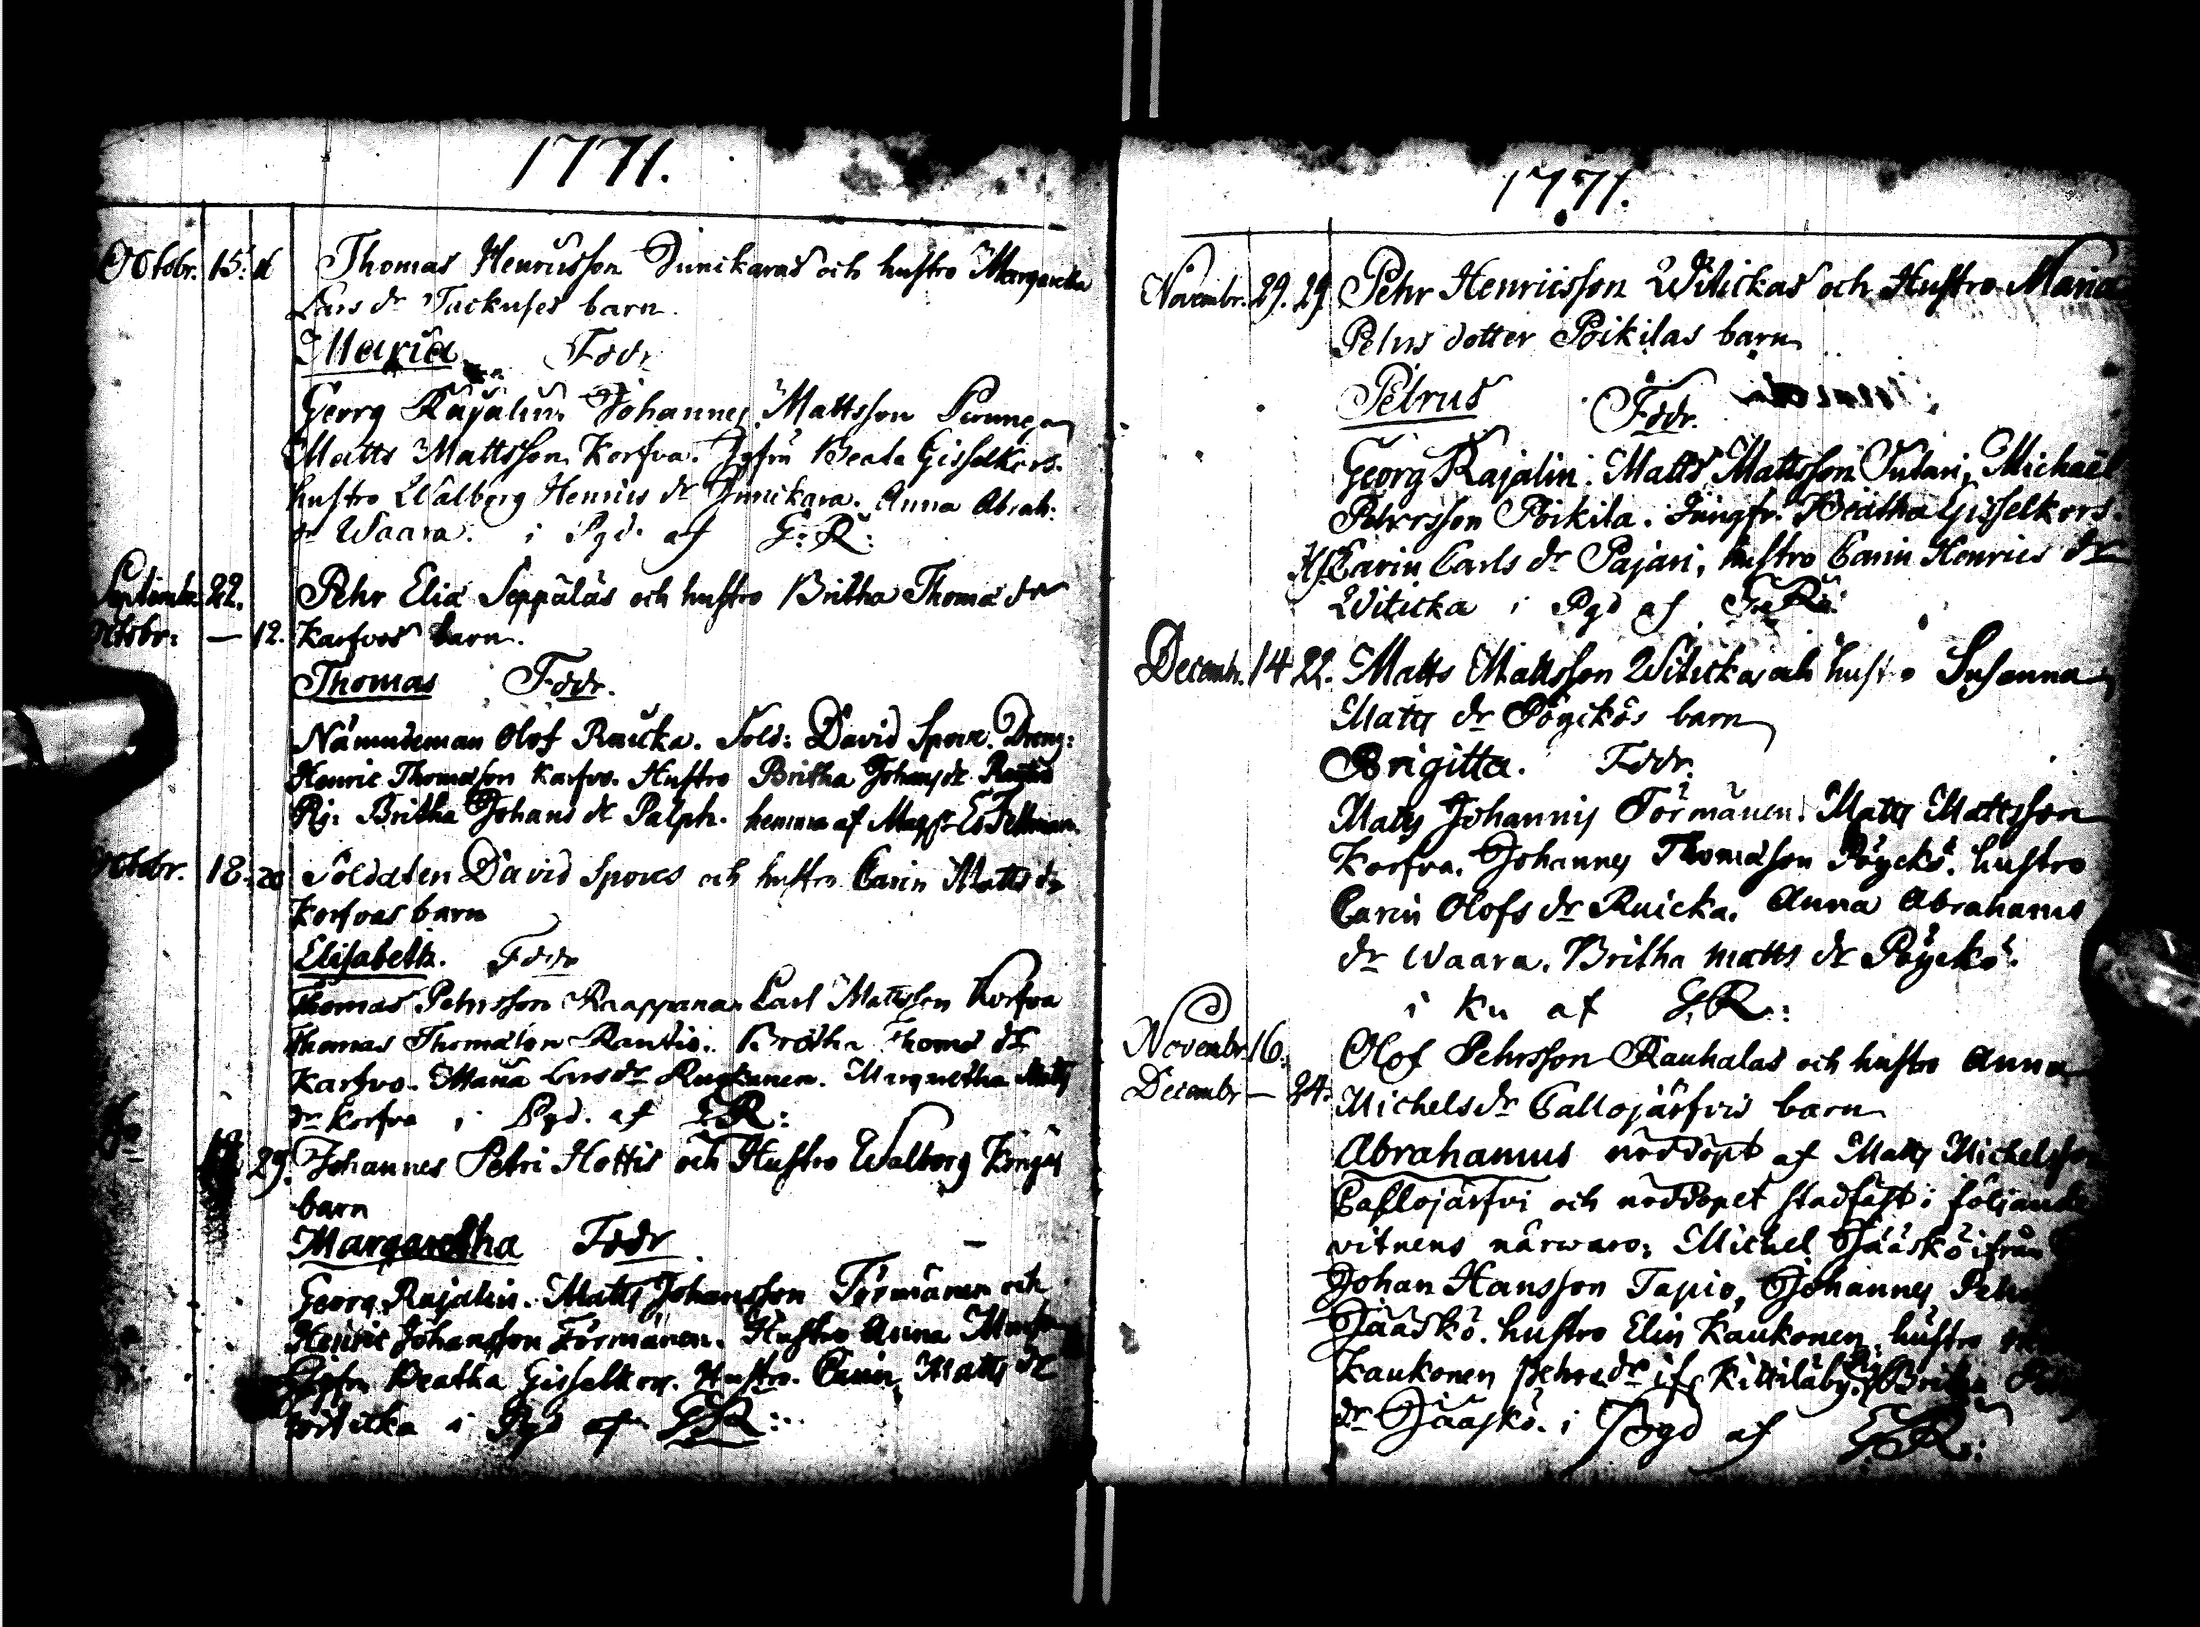 1771.
Octobr. 15. Thomas Henricsson Junckaras och hustro Margareta
Lars dr Tuckuses barn.
Maria Fddr
Georg Rajalin. Johannes Mattsson
Matts Mattsson Korfva. Jgfru Beata Gisselkors.
hustro Walborg Henrics dr Junckara. Anna Abrah:
dr Waara. i Pgd. af G: R:
Septembr. 22. Pehr Elia Seppäläs och hustro Britha Thomæ dr
Octobr: — 12. Karfvos barn.
Thomas Fddr.
Nämndeman Olof Ruicka. Sold: David Spore. Dreng:
Henric Thomasson Karfvo. Hustro Britha Johans dr
Pij: Britha Johans dr Palph. hemma af Mag: Es: Fellman.
Octobr. 18. 20 Soldaten David Spores och hustro Carin Matts dr
Korfvas barn
Elisabeth. Fddr
Thomas Pehrsson Raappana. Carl Mattsson Korfva
Thomas Thomason Rautio. Britha Thomæ dr
Karfvo. Maria Lars dr Margretha Matts
dr Korfva i Pgd. af G R:
29. Johannes Petri Hottis och Hustro Walborg
barn
Margaretha Fddr
Georg Rajalin. Matts Johansson Törmänen och
Henric Johansson Törmänen. Hustro Anna
Jgfru Beatha Gisselkors. Hustro. Carin Matts dr
Witicka i Pgd af G R:
1771.
Novembr. 29. 29. Pehr Henricsson Witickas och Hustro Maria
Pehrs dotter Poikilas barn
Petrus Fddr.
Georg Rajalin. Matts Mattsson Outari, Michaël
Pehrsson Poikila. Jungfr. Beatha Gisselkors.
H. Carin Carls dr Pajari, hustro Carin Henrics dr
Witicka i Pgd af G: R:
Decembr. 14 22. Matts Mattsson Witickas och hustro Susanna
Matts dr Pöyckös barn
Brigitta. Fddr.
Matts Johannis Törmänen. Matts Mattsson
Korfva. Johannes Thomasson Pöyckö. hustro
Carin Olofs dr Ruicka. Anna Abrahams
dr Waara. Britha Matts dr Pöyckö.
i Ku af G. R.:
Novembr. 16. Olof Pehrsson Rauhalas och hustro Anna
Decembr — 24. Michels dr Callojärfvis barn
Abrahamus nöddöpt af Matts Michelsson
Callojärfvi och nöddopet stadfäst i följande
vitnens närwaro: Michel Jääskö ifrån
Johan Hansson Tapio, Johannes
Jääskö. hustro Elin Kaukonen, hustro
Kaukonen Pehrs dr if. Kittiläby. Britha
dr Jääskö. i Pgd af G. R: